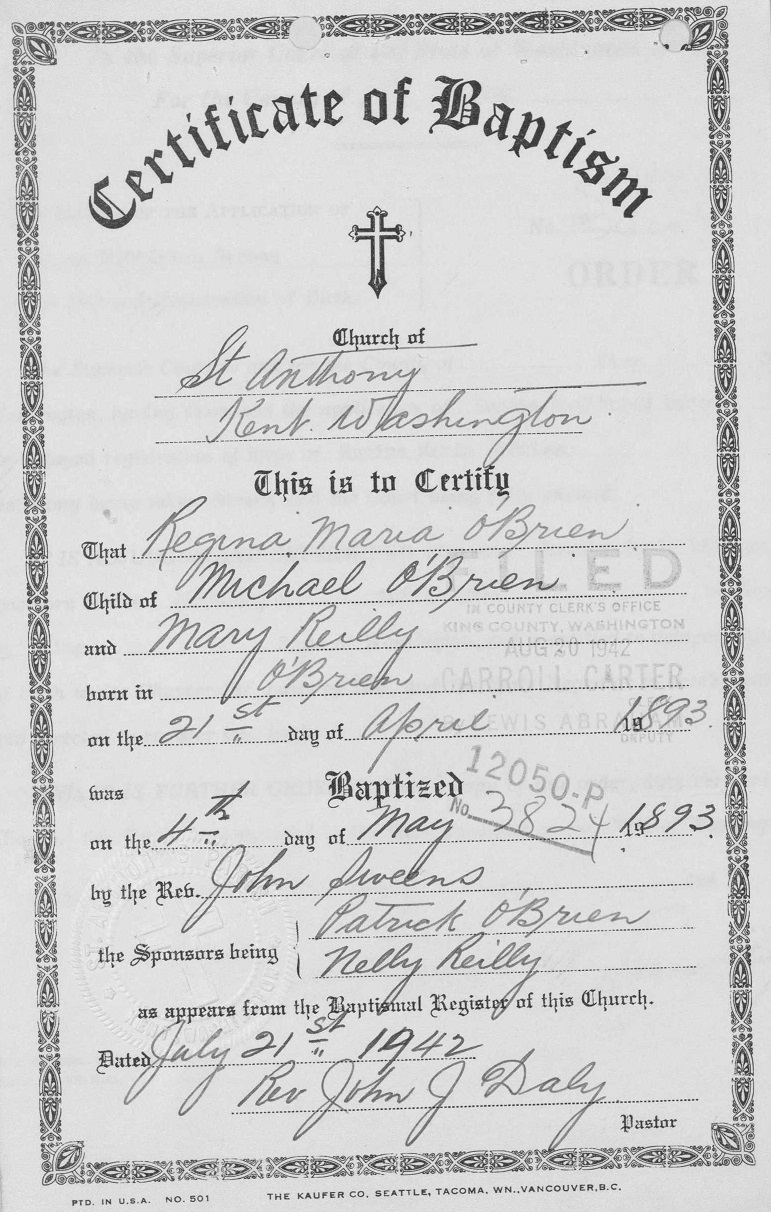 Certificate of Baptism
Church of
St Anthony
Kent. Washington.
This is to Certify
That Regina Maria O'Brien
Child of Michael O'Brien
and Mary Reilly
born in O'Brien
on the 21st day of April 1893
was Baptized
on the 4th day of May 1893
by the Rev. John Sweens
the Sponsors being Patrick O'Brien
Nelly Reilly
as appears from the Baptismal Register of this Church.
Dated July 21st 1942
Rev John J Daly
Pastor
FILED
IN COUNTY CLERK'S OFFICE
KING COUNTY, WASHINGTON
AUG 20 1942
CARROLL CARTER
LEWIS ABRAHAM
DEPUTY
12050.P
No. 3824
ORDER
PTD. IN U.S.A. NO. 501
THE KAUFER CO. SEATTLE, TACOMA, WN., VANCOUVER, B.C.